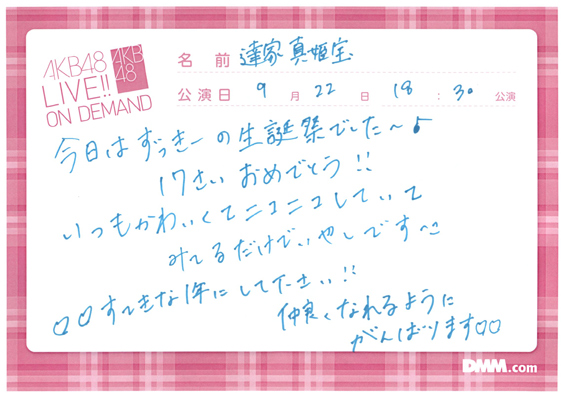 AKB48
LIVE!!
ON DEMAND
AKB
48
名 前 達家真姫宝
公演日 9 月 22 日 18 : 30 公演
今日はずっきーの生誕祭でした〜♪
17さい おめでとう!!
いつもかわいくてニコニコしていて
みてるだけでいやしです〜
♡♡すてきな1年にしてださい!!
仲良くなれるように
がんばります♡♡
DMM.com